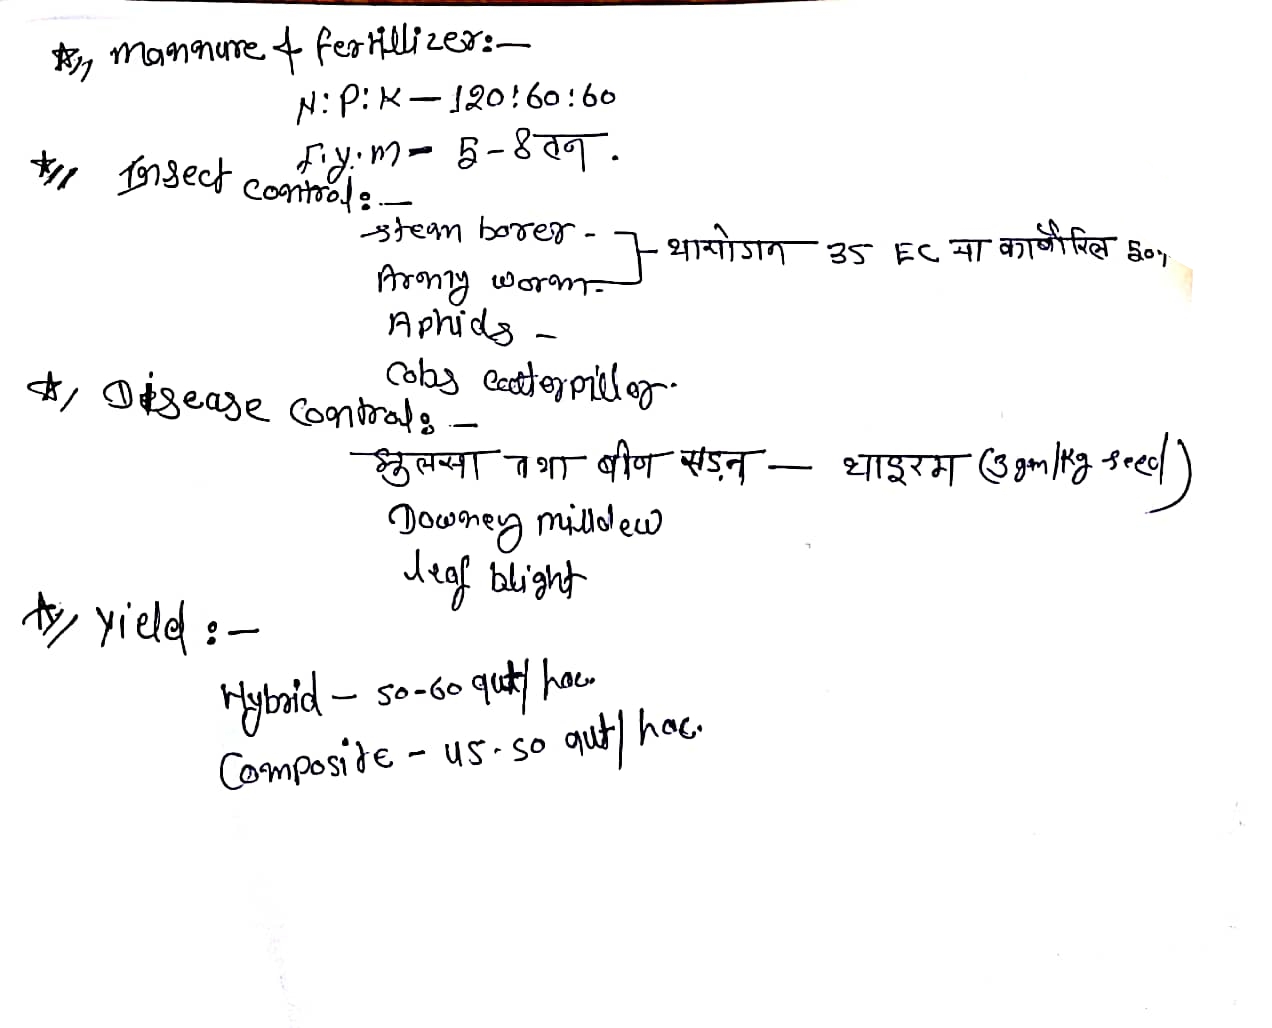 Mannure & fertillizer:—
N:P:K — 120:60:60
F.y.m — 5-8 टन.
Insect control:—
steam borer -
थायोडान 35 EC या कार्बोरिल 50%
Army worm -
Aphids -
Cobs catterpiller.
Disease control:—
झुलसा तथा बीज सड़न — थाइरम (3 gm/kg seed)
Downey milldew
leaf blight
Yield:—
Hybrid — 50-60 qut/hac.
Composite - 45-50 qut/hac.